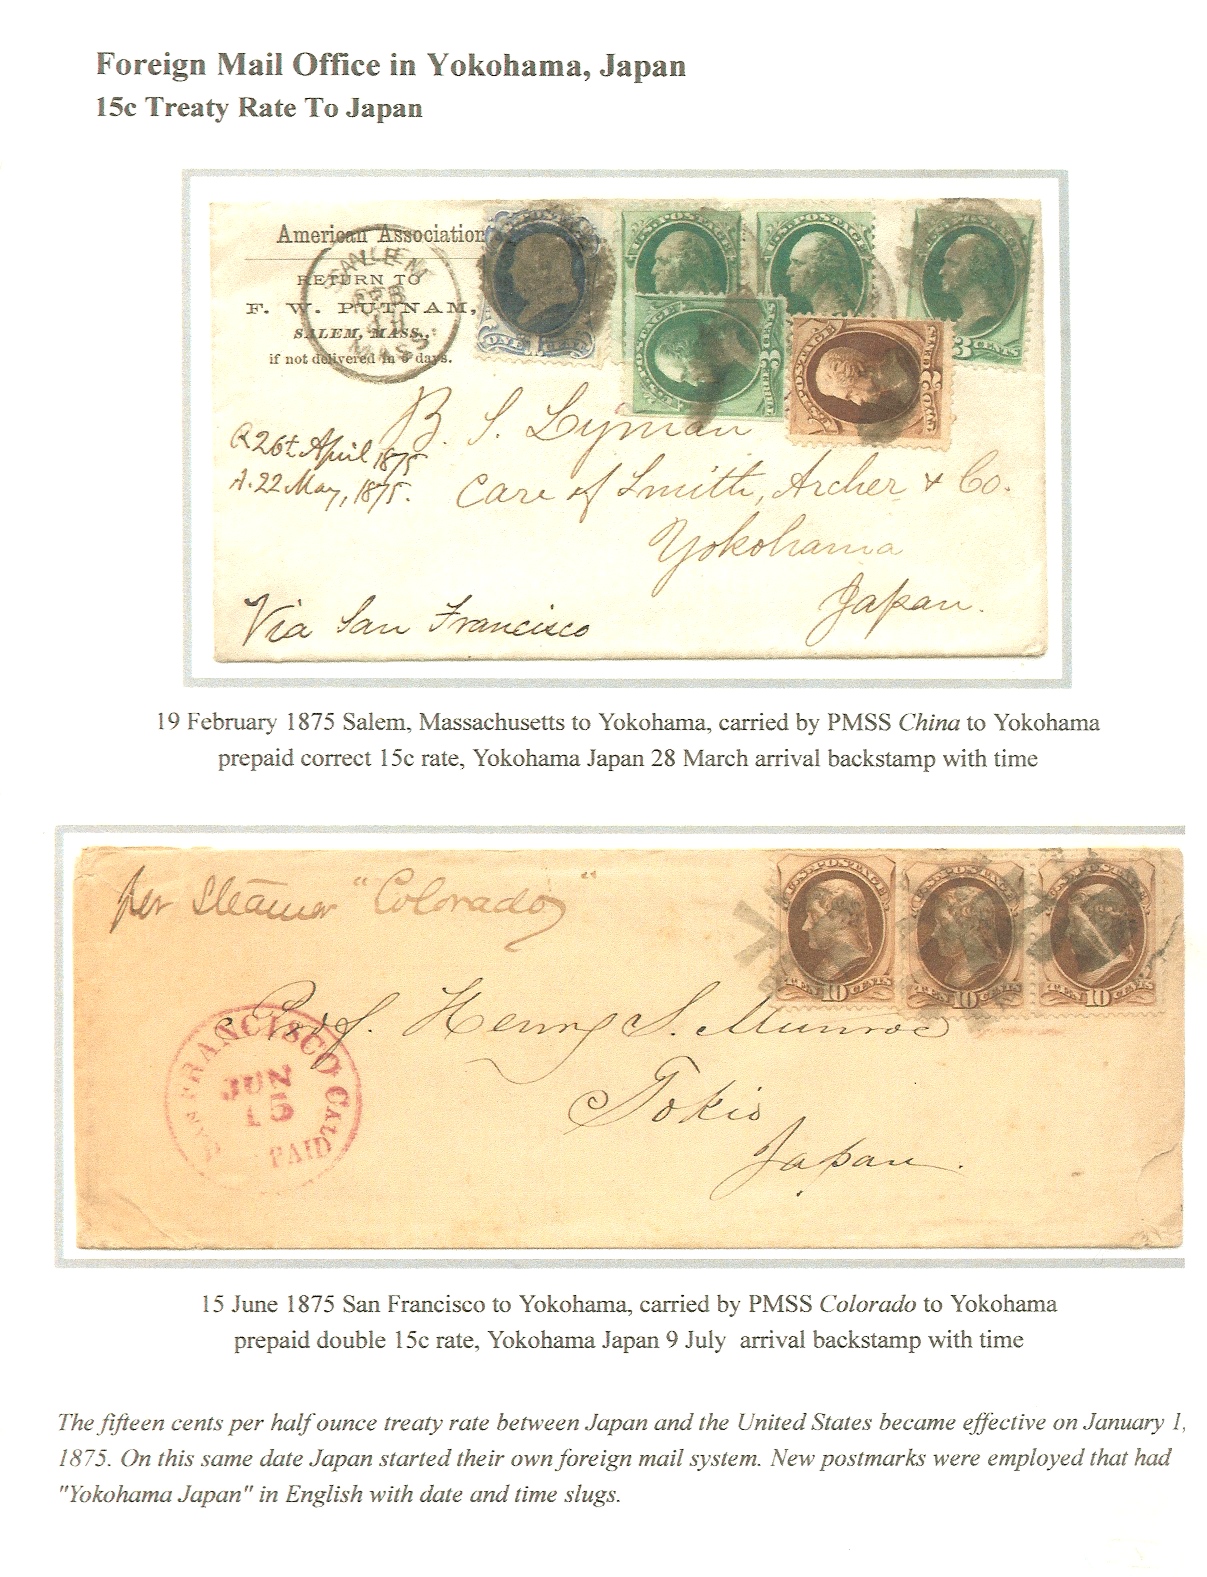 Foreign Mail Office in Yokohama, Japan
15c Treaty Rate To Japan
American Association
RETURN TO
F. W. PUTNAM,
SALEM, MASS.,
if not delivered in 5 days.
SALEM
FEB
MASS.
U.S. POSTAGE
U.S. POSTAGE
3 CENTS
ONE
THREE 3 CENTS
B. S. Lyman
Care of Smith, Archer & Co.
Yokohama
Japan.
R 26th April 1875
A. 22 May, 1875.
Via San Francisco
19 February 1875 Salem, Massachusetts to Yokohama, carried by PMSS China to Yokohama
prepaid correct 15c rate, Yokohama Japan 28 March arrival backstamp with time
per Steamer "Colorado"
U.S. POSTAGE
TEN 10 CENTS
TEN 10 CENTS
TEN 10 CENTS
Prof. Henry S. Munroe
Tokio
Japan.
SAN FRANCISCO CAL
JUN
15
PAID
15 June 1875 San Francisco to Yokohama, carried by PMSS Colorado to Yokohama
prepaid double 15c rate, Yokohama Japan 9 July arrival backstamp with time
The fifteen cents per half ounce treaty rate between Japan and the United States became effective on January 1,
1875. On this same date Japan started their own foreign mail system. New postmarks were employed that had
"Yokohama Japan" in English with date and time slugs.